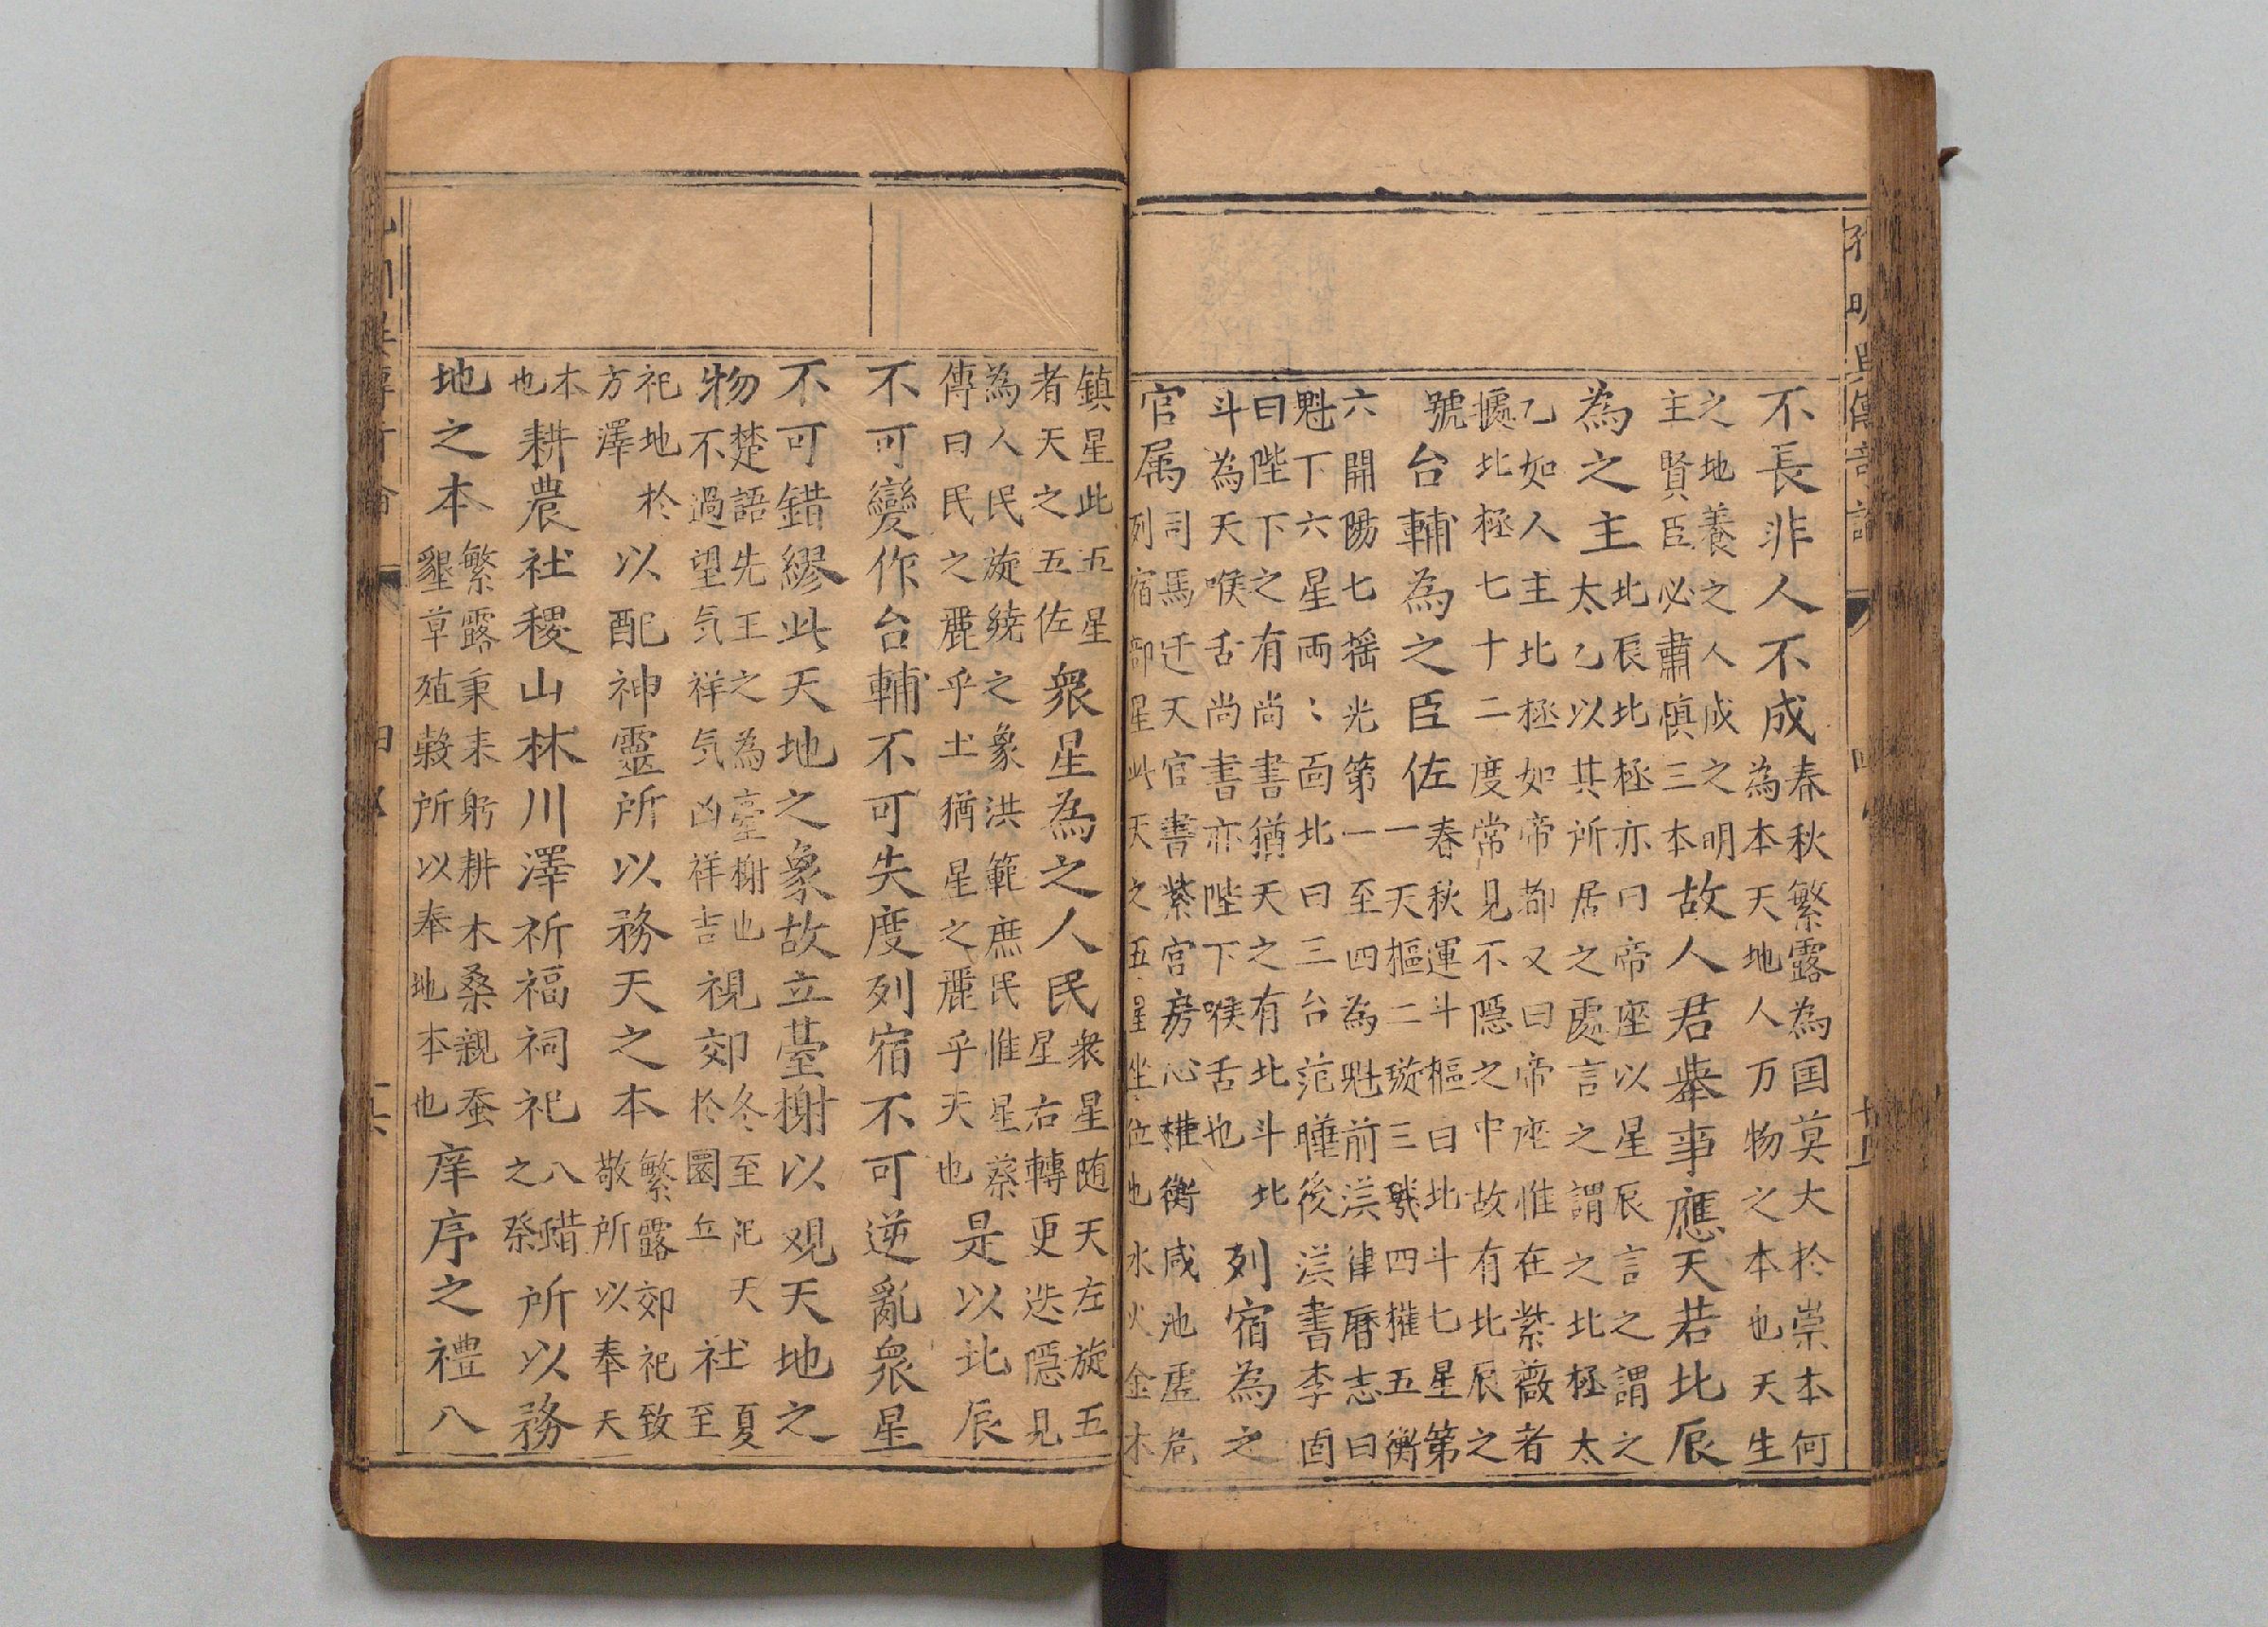 不長非人不成春秋繁露為国莫大於崇本何為本天地人万物之本也天生
之地養之人成之明主賢臣必肅慎三本故人君舉事應天若北辰
為之主北辰北極亦曰帝座以星辰言之謂之太乙以其所居之處言之謂之北極太
乙如人主北極如帝都又曰帝座惟在紫薇者㨿北極七十二度常見不隱之中故有北辰之
號台輔為之臣佐春秋運斗樞曰北斗七星第一天樞二璇三璣四權五衡
六開陽七搖光第一至四為魁前漢律曆志曰魁下六星兩〻面北曰三台范曄後漢書李固
曰陛下之有尚書猶天之有北斗北斗為天喉舌尚書亦陛下喉舌也列宿為之
官属司馬迁天官書紫宮房心權衡咸池虛危列宿部星此天之五星坐位也水火金木
鎮星此五星者天之五佐衆星為之人民衆星随天左旋五星右轉更迭隱見
為人民旋繞之象洪範庶民惟星蔡傳曰民之麗乎土猶星之麗乎天也是以北辰
不可變作台輔不可失度列宿不可逆亂衆星
不可錯繆此天地之象故立臺榭以观天地之
物楚語先王之為臺榭也不過望気祥気凶祥吉視郊冬至祀天於圜丘社夏至
祀地於方澤以配神靈所以務天之本繁露郊祀致敬所以奉天
本也耕農社稷山林川澤祈福祠祀八蜡之祭所以務
地之本繁露秉耒躬耕木桑親蚕墾草殖穀所以奉地本也庠序之禮八